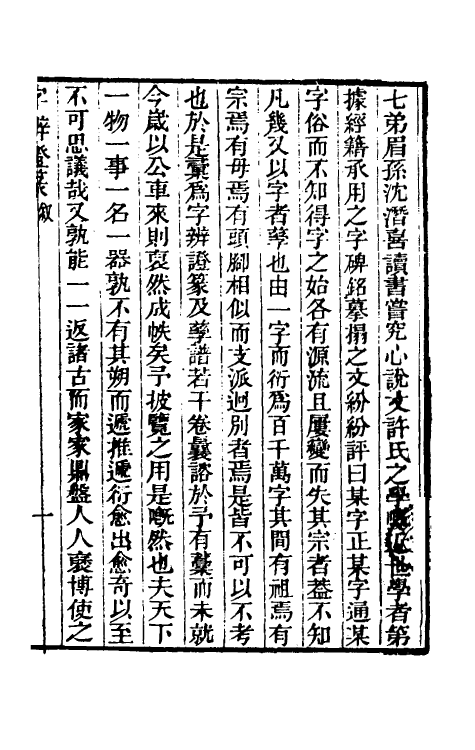 七弟眉孫沈潛喜讀書嘗究心說文許氏之學世學者第
據經籍承用之字碑銘摹搨之文紛紛評曰某字正某字通某
字俗而不知得字之始各有源流且屢變而失其宗者葢不知
凡幾又以字者孳也由一字而衍爲百千萬字其間有祖焉有
宗焉有母焉有頭腳相似而支派迥別者焉是皆不可以不考
也於是彙爲字辨證篆及孳譜若干卷曩諮於予有彙而未就
今歲以公車來則裒然成帙矣予披覽之用是嘅然也夫天下
一物一事一名一器孰不有其朔而遞推遞衍愈出愈奇以至
不可思議哉又孰能一一返諸古而家家鼎盤人人襃博使之
字辨證篆 敘
一